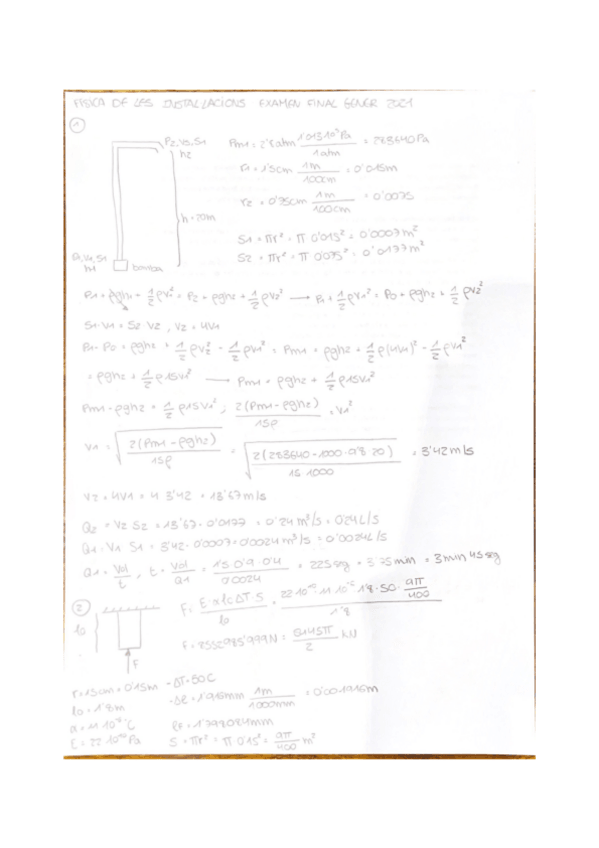 FISICA DE LES INSTALLACIONS EXAMEN FINAL GENER 2021
1
P2, V2, S1
h2
h=20m
P1, V1, S1
h1
bomba
Pm1 = 2'8atm 1'013·10⁵Pa / 1atm = 283640Pa
r1 = 1'5cm 1m / 100cm = 0'015m
r2 = 0'75cm 1m / 100cm = 0'0075
S1 = πr² = π 0'015² = 0'0007m²
S2 = πr² = π 0'075² = 0'0177m²
P1 + ρgh1 + 1/2 ρv1² = P2 + ρgh2 + 1/2 ρv2² → P1 + 1/2 ρv1² = P0 + ρgh2 + 1/2 ρv2²
S1·V1 = S2 V2, V2 = 4V1
P1 - P0 = ρgh2 + 1/2 ρv2² - 1/2 ρv1² = Pm1 = ρgh2 + 1/2 ρ(4V1)² - 1/2 ρv1²
= ρgh2 + 1/2 ρ15v1² → Pm1 = ρgh2 + 1/2 ρ15v1²
Pm1 - ρgh2 = 1/2 ρ15v1², 2(Pm1 - ρgh2) / 15ρ = v1²
V1 = √(2(Pm1 - ρgh2) / 15ρ) = √(2(283640 - 1000·9'8·20) / 15·1000) = 3'42m/s
V2 = 4V1 = 4 3'42 = 13'67m/s
Q2 = V2 S2 = 13'67·0'0177 = 0'24m³/s = 0'24L/s
Q1 = V1 S1 = 3'42·0'0007 = 0'0024m³/s = 0'0024L/s
Q1 = Vol / t, t = Vol / Q1 = 15·0'9·0'4 / 0'0024 = 225seg = 3'75min = 3min 45seg
2
l0
F
F = E·αl0ΔT·S / l0 = 22·10¹⁰·11·10⁻⁶·1'8·50·9π/400 / 1'8
F = 8552985'999N = 5445π / 2 kN
r = 15cm = 0'15m
-ΔT = 50C
l0 = 1'8m
α = 11·10⁻⁶ °C
E = 22·10¹⁰Pa
S = πr² = π·0'15² = 9π / 400 m²